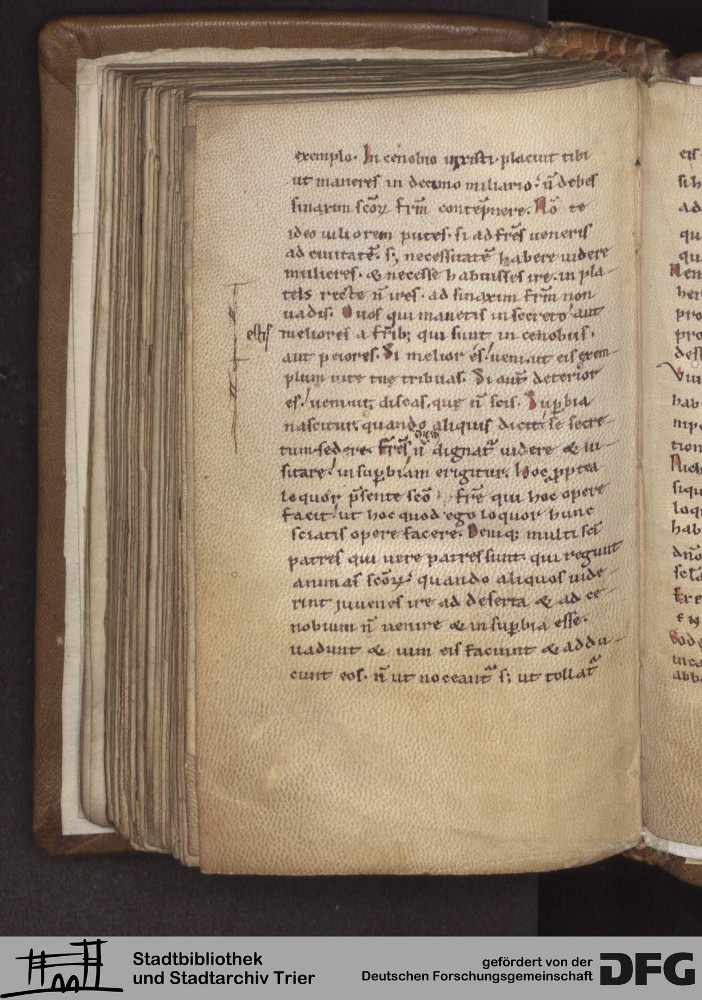 exemplo. In cenobio uixisti. placuit tibi
ut maneres in decimo miliario. n̄ debes
sinaxim scōꝝ fr̄m contēpnere. Nō te
ideo uiliorem putes. si ad fr̄es ueneris
ad ciuitatē. s; necessitatē habere uidere
mulieres. & necesse habuisses ire. in pla-
teis recte n̄ ires. ad sinaxim fr̄m non
uadis. Quos qui manetis in secreto aut
estis meliores a fr̄ib; qui sunt in cenobiis.
aut peiores. Si melior es. ueni. ut eis exem-
plum uite tuę tribuas. Si aut̄ deterior
es. ueni. ut discas. que n̄ scis. Supbia
nascitur. quando aliquis dicit. se secre-
tum sedere. fr̄es n̄ dignat̄ uidere & ui-
sitare. in supbiam erigitur. Hoc ppterea
loquor p̄sente scō fr̄e qui hoc opere
facit. ut hoc quod ego loquor hunc
sciatis opere facere. Deniq; multi sci
patres qui uere patres sunt. qui regunt
animas scōꝝ. quando aliquos uide-
rint iuuenes ire ad deserta & ad ce-
nobium n̄ uenire & in supbia esse.
uadunt & uim eis faciunt & addu-
cunt eos. n̄ ut noceant̄ s; ut tollat̄
eis
ad
qu
qu
ber
pro
pro
hab
tion
siqu
loqu
hab
Stadtbibliothek
und Stadtarchiv Trier
gefördert von der
Deutschen Forschungsgemeinschaft
DFG